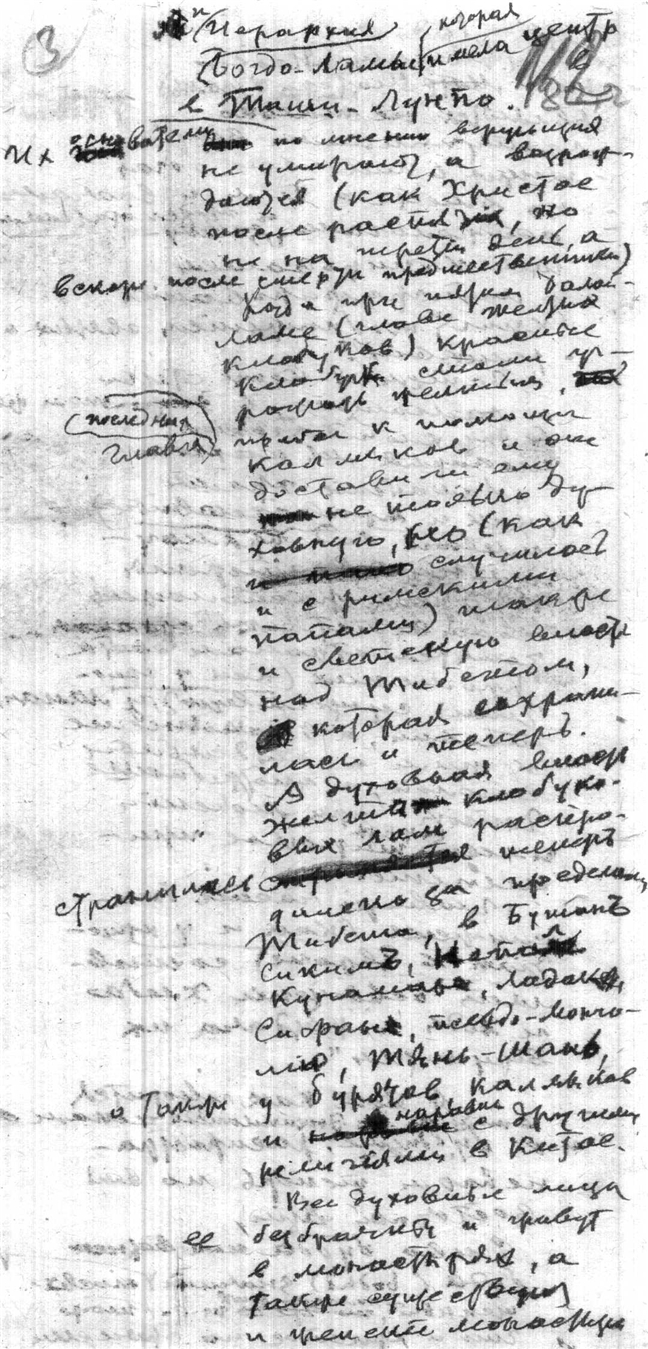 3
и Иерархия которая
Богдо-Ламы имела центр
в
в Таши-Лунпо.
Их основатели по мнению верующих
не умирают, а возрож-
даются (как Христос
после распятия, но
не на третий день, а
вскоре после смерти предшественника)
Когда при пятом Далай-
ламе (главе желтых
клобуков) красные
клобуки стали уг-
рожать желтым,
(последний
главе) к помощи
калмыков и они
доставили ему
не только ду-
ховную, но (как
случилось
и с римскими
папами) также
и светскую власть
над Тибетом,
которая сохрани-
лась и теперь.
А духовная власть
желто клобуко-
вых лам распро-
странилась теперь
далеко за пределами
Тибета, в Бутань
Сиким, Непал
Кунамане, Ладаке,
псевдо-Монго-
лию, Тянь-Шань,
а также у бурятов калмыков
и наравне с другими
религиями в Китае.
Все духовные лица
ее безбрачны и живут
в монастырях, а
также существуют
и женские монастыри